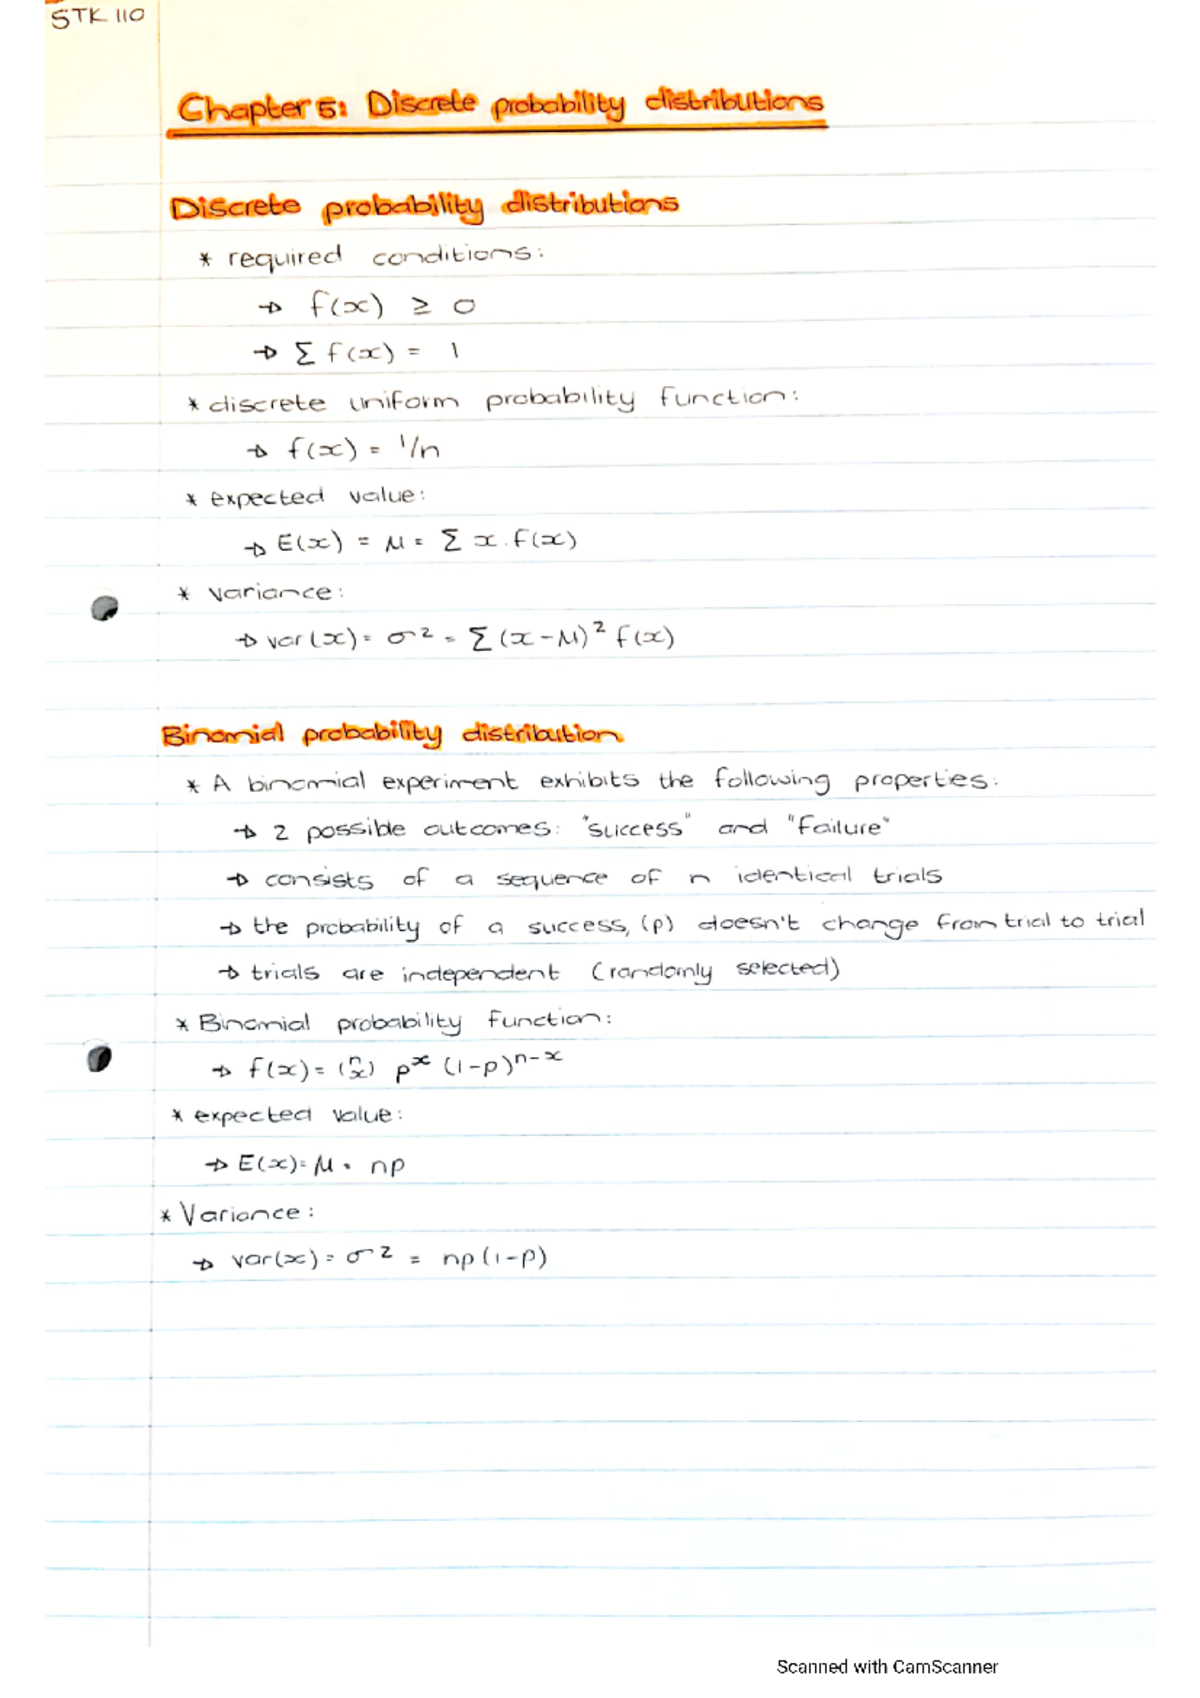 STK 110
Chapter 5: Discrete probability distributions
Discrete probability distributions
* required conditions:
→ f(x) ≥ 0
→ Σ f(x) = 1
* discrete uniform probability function:
→ f(x) = 1/n
* expected value:
→ E(x) = μ = Σ x.f(x)
* variance:
→ var(x) = σ² = Σ (x-μ)² f(x)
Binomial probability distribution
* A binomial experiment exhibits the following properties:
→ 2 possible outcomes: "success" and "failure"
→ consists of a sequence of n identical trials
→ the probability of a success, (p) doesn't change from trial to trial
→ trials are independent (randomly selected)
* Binomial probability function:
→ f(x) = (n x) pˣ (1-p)ⁿ⁻ˣ
* expected value:
→ E(x) = μ = np
* Variance:
→ var(x) = σ² = np(1-p)
Scanned with CamScanner